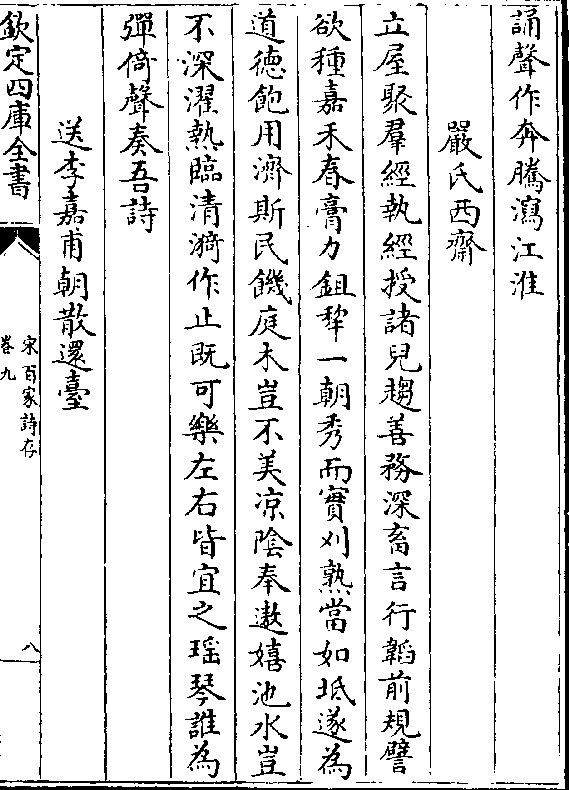 誦聲作奔騰瀉江淮
嚴氏西齋
立屋聚羣經執經授諸兒趨善務深畜言行韜前規譬
欲種嘉禾春膏力鉏犂一朝秀而實刈熟當如坻遂為
道德飽用濟斯民饑庭木豈不美凉陰奉遨嬉池水豈
不深濯執臨清漪作止既可樂左右皆宜之瑶琴誰為
彈倚聲奏吾詩
送李嘉甫朝散還臺
欽定四庫全書
宋百家詩存
卷九
八